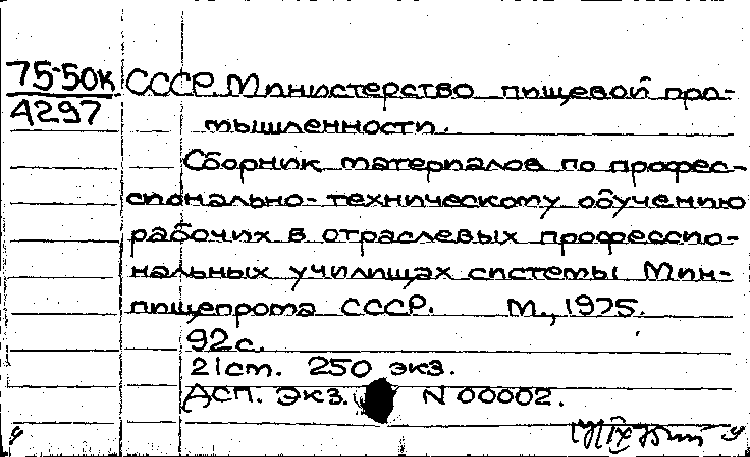 75-50к СССР. Министерство пищевой про-
4297
мышленности.
Сборник материалов по профес-
сионально-техническому обучению
рабочих в отраслевых профессио-
нальных училищах системы Мин-
пищепрома СССР. М., 1975.
92с.
21см. 250 экз.
Асп. Экз. N 00002.